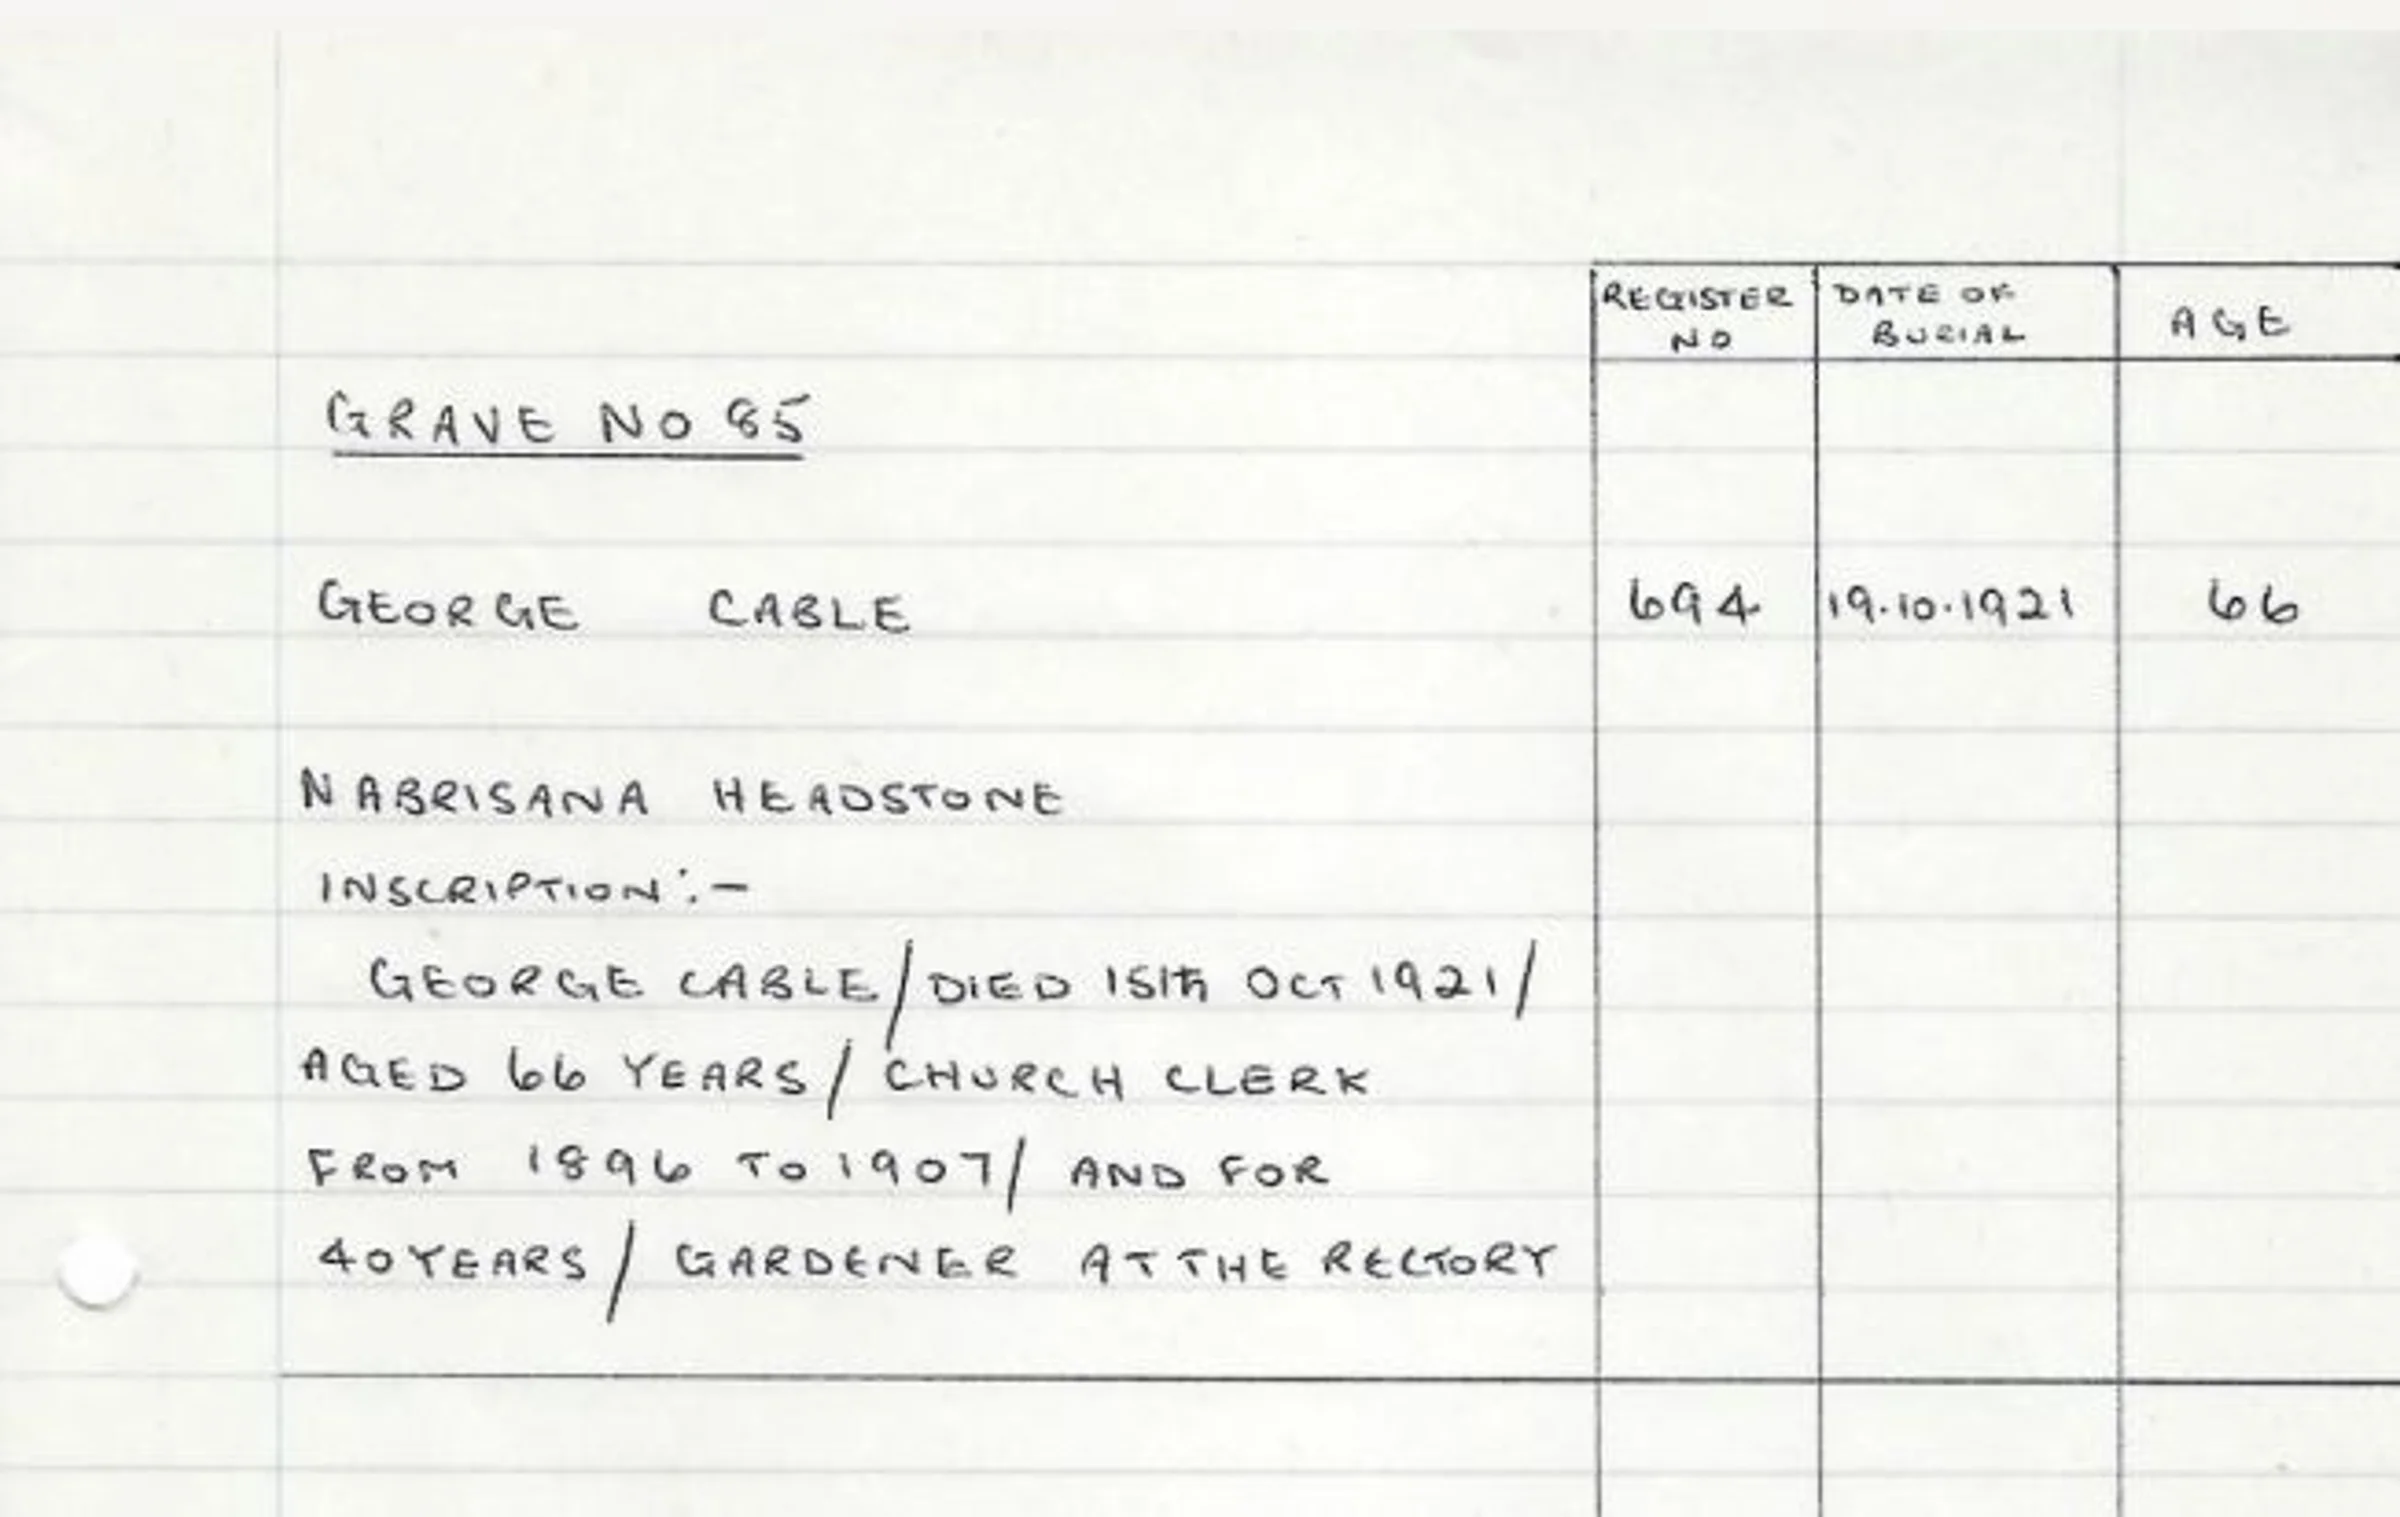 REGISTER NO DATE OF BURIAL AGE
GRAVE NO 85
GEORGE CABLE 694 19.10.1921 66
NABRISANA HEADSTONE
INSCRIPTION:-
GEORGE CABLE/DIED 15th OCT 1921/
AGED 66 YEARS/ CHURCH CLERK
FROM 1896 TO 1907/ AND FOR
40 YEARS/ GARDENER AT THE RECTORY